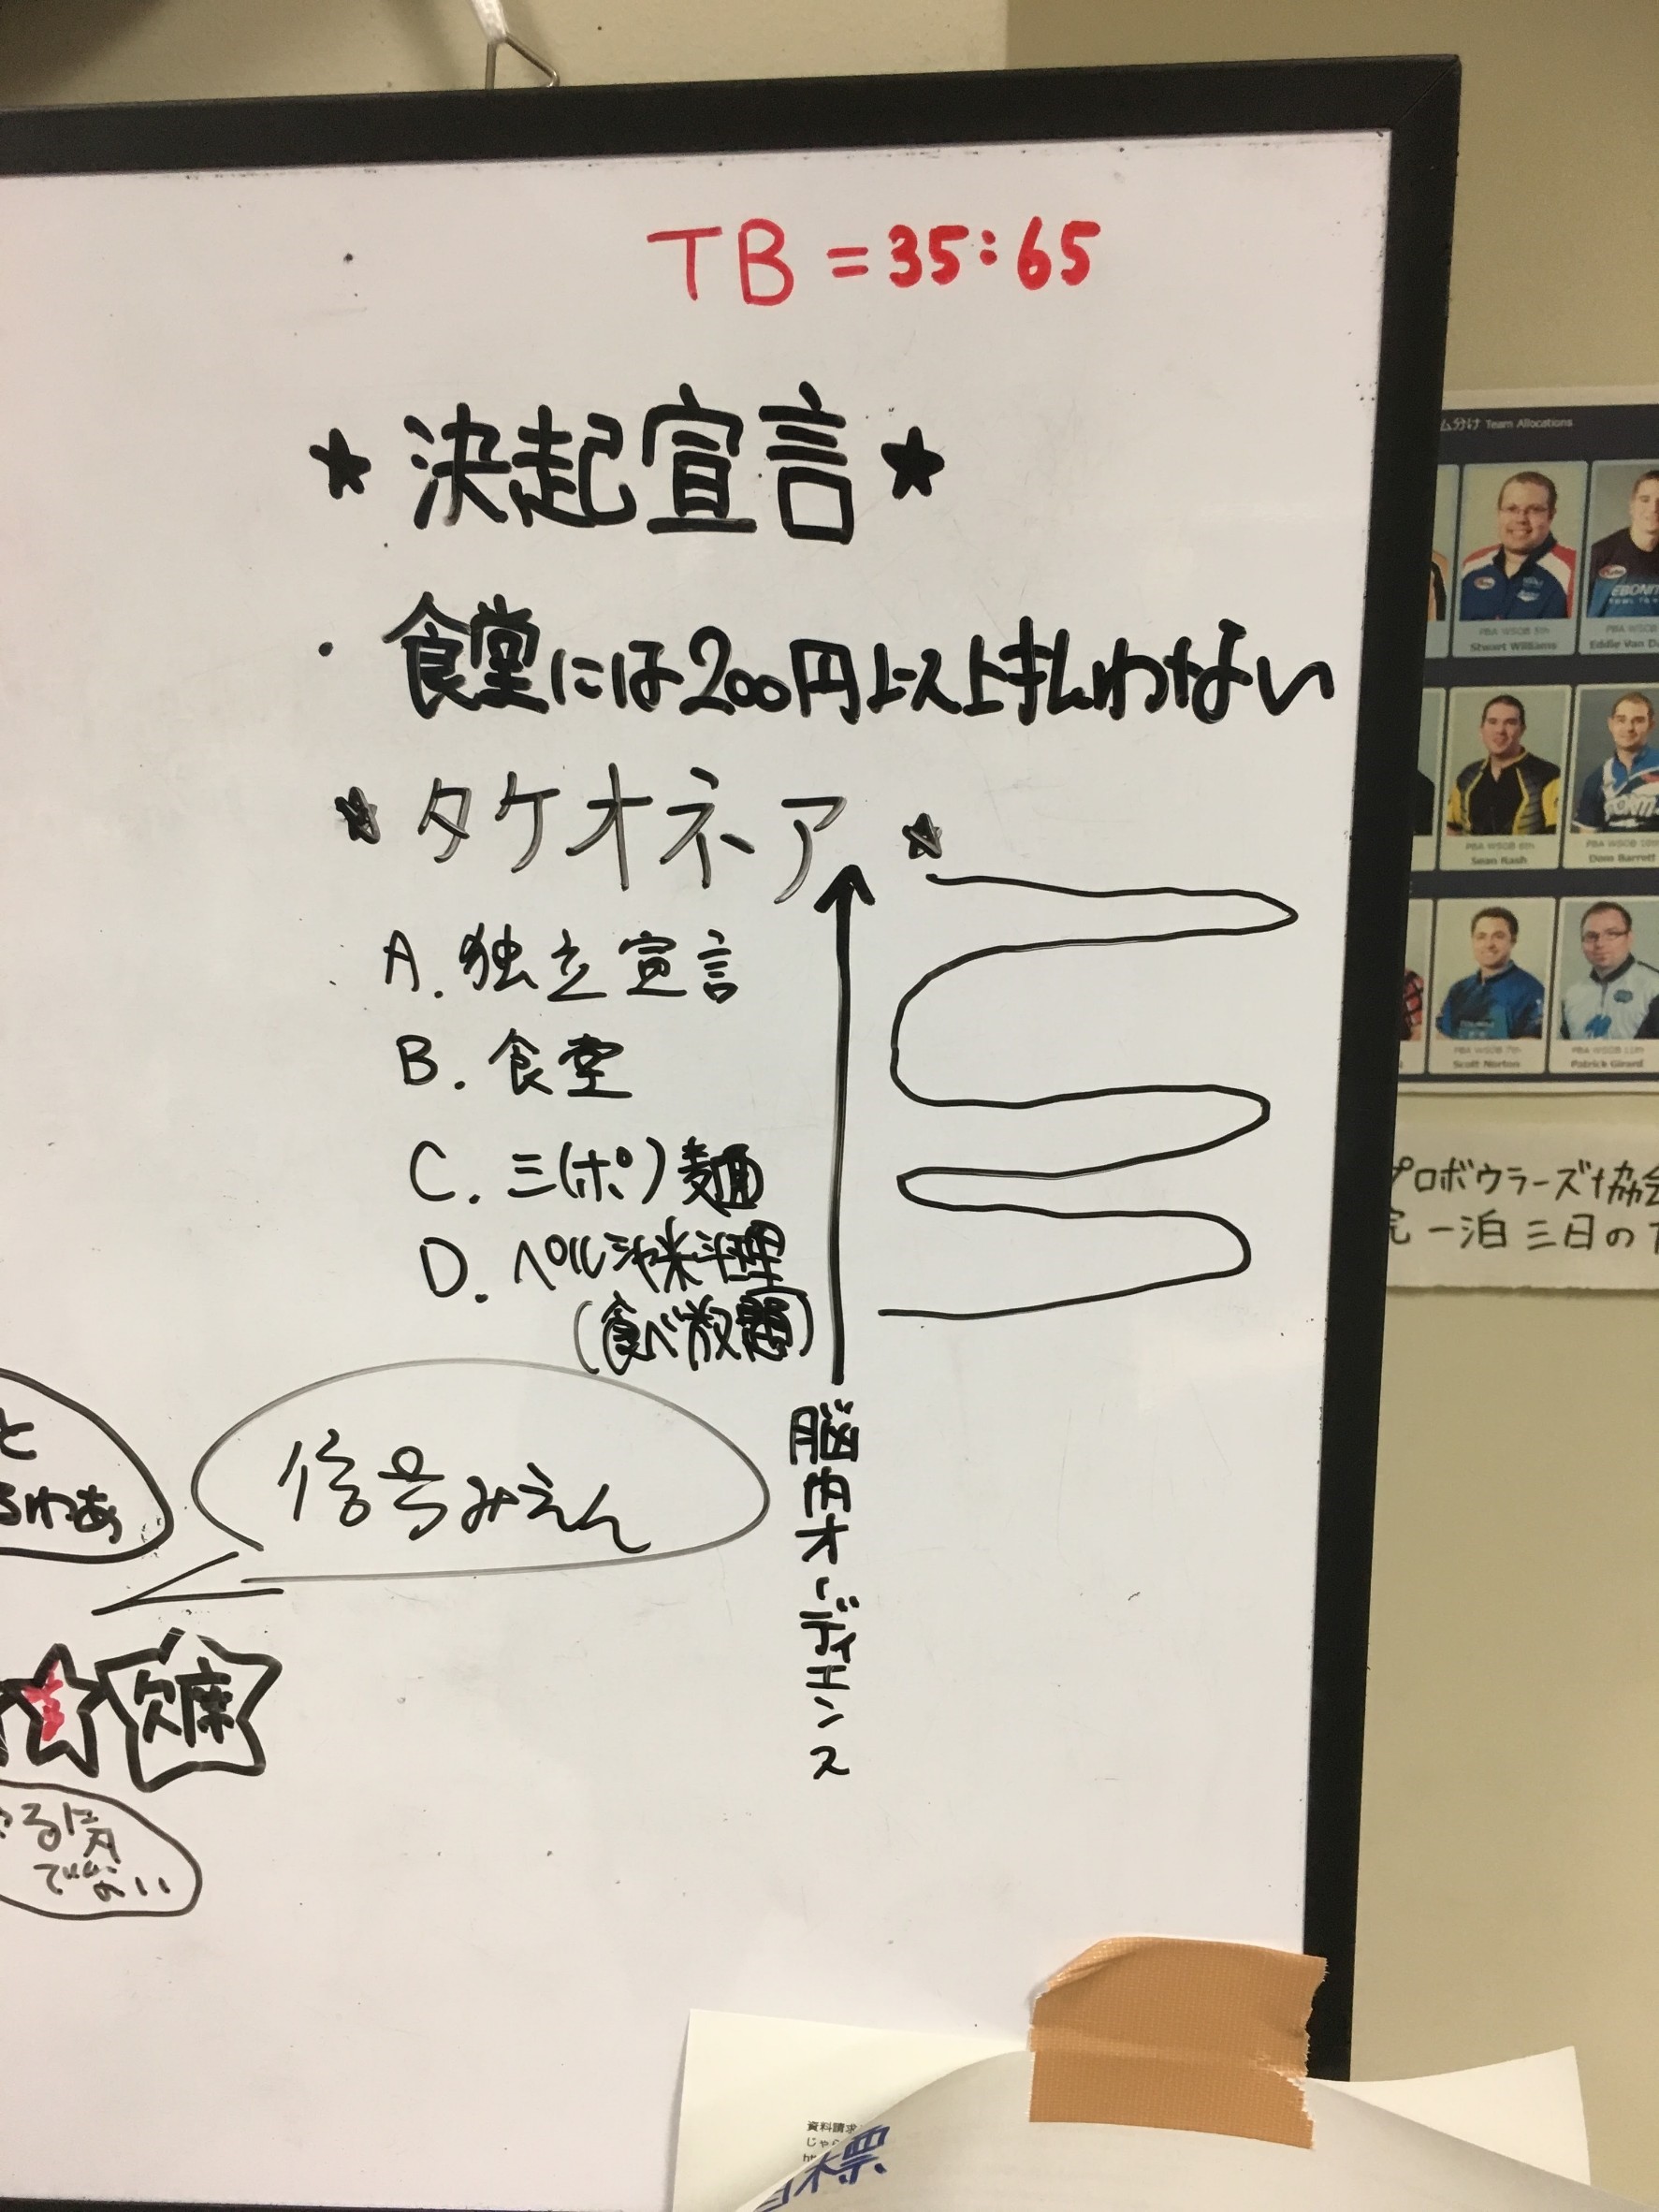 TB=35:65
★決起宣言★
・食堂には200円以上払わない
★タケオネア★
A.独立宣言
B.食堂
C.三(ポ)麺
D.ペルシャ料理
(食べ放題)
脳内オーディエンス
と
るわあ
信号みえん
欠席
る気
でない
ム分け Team Allocations
PBA WSOB 5th
Stuart Williams
EBONITE
Eddie Van D
PBA WSOB 6th
Sean Rash
PBA WSOB 10th
Dom Barrett
PBA WSOB 7th
Scott Norton
PBA WSOB 11th
Patrick Girard
プロボウラーズ協会
一泊三日の
資料請求
じゃら
標